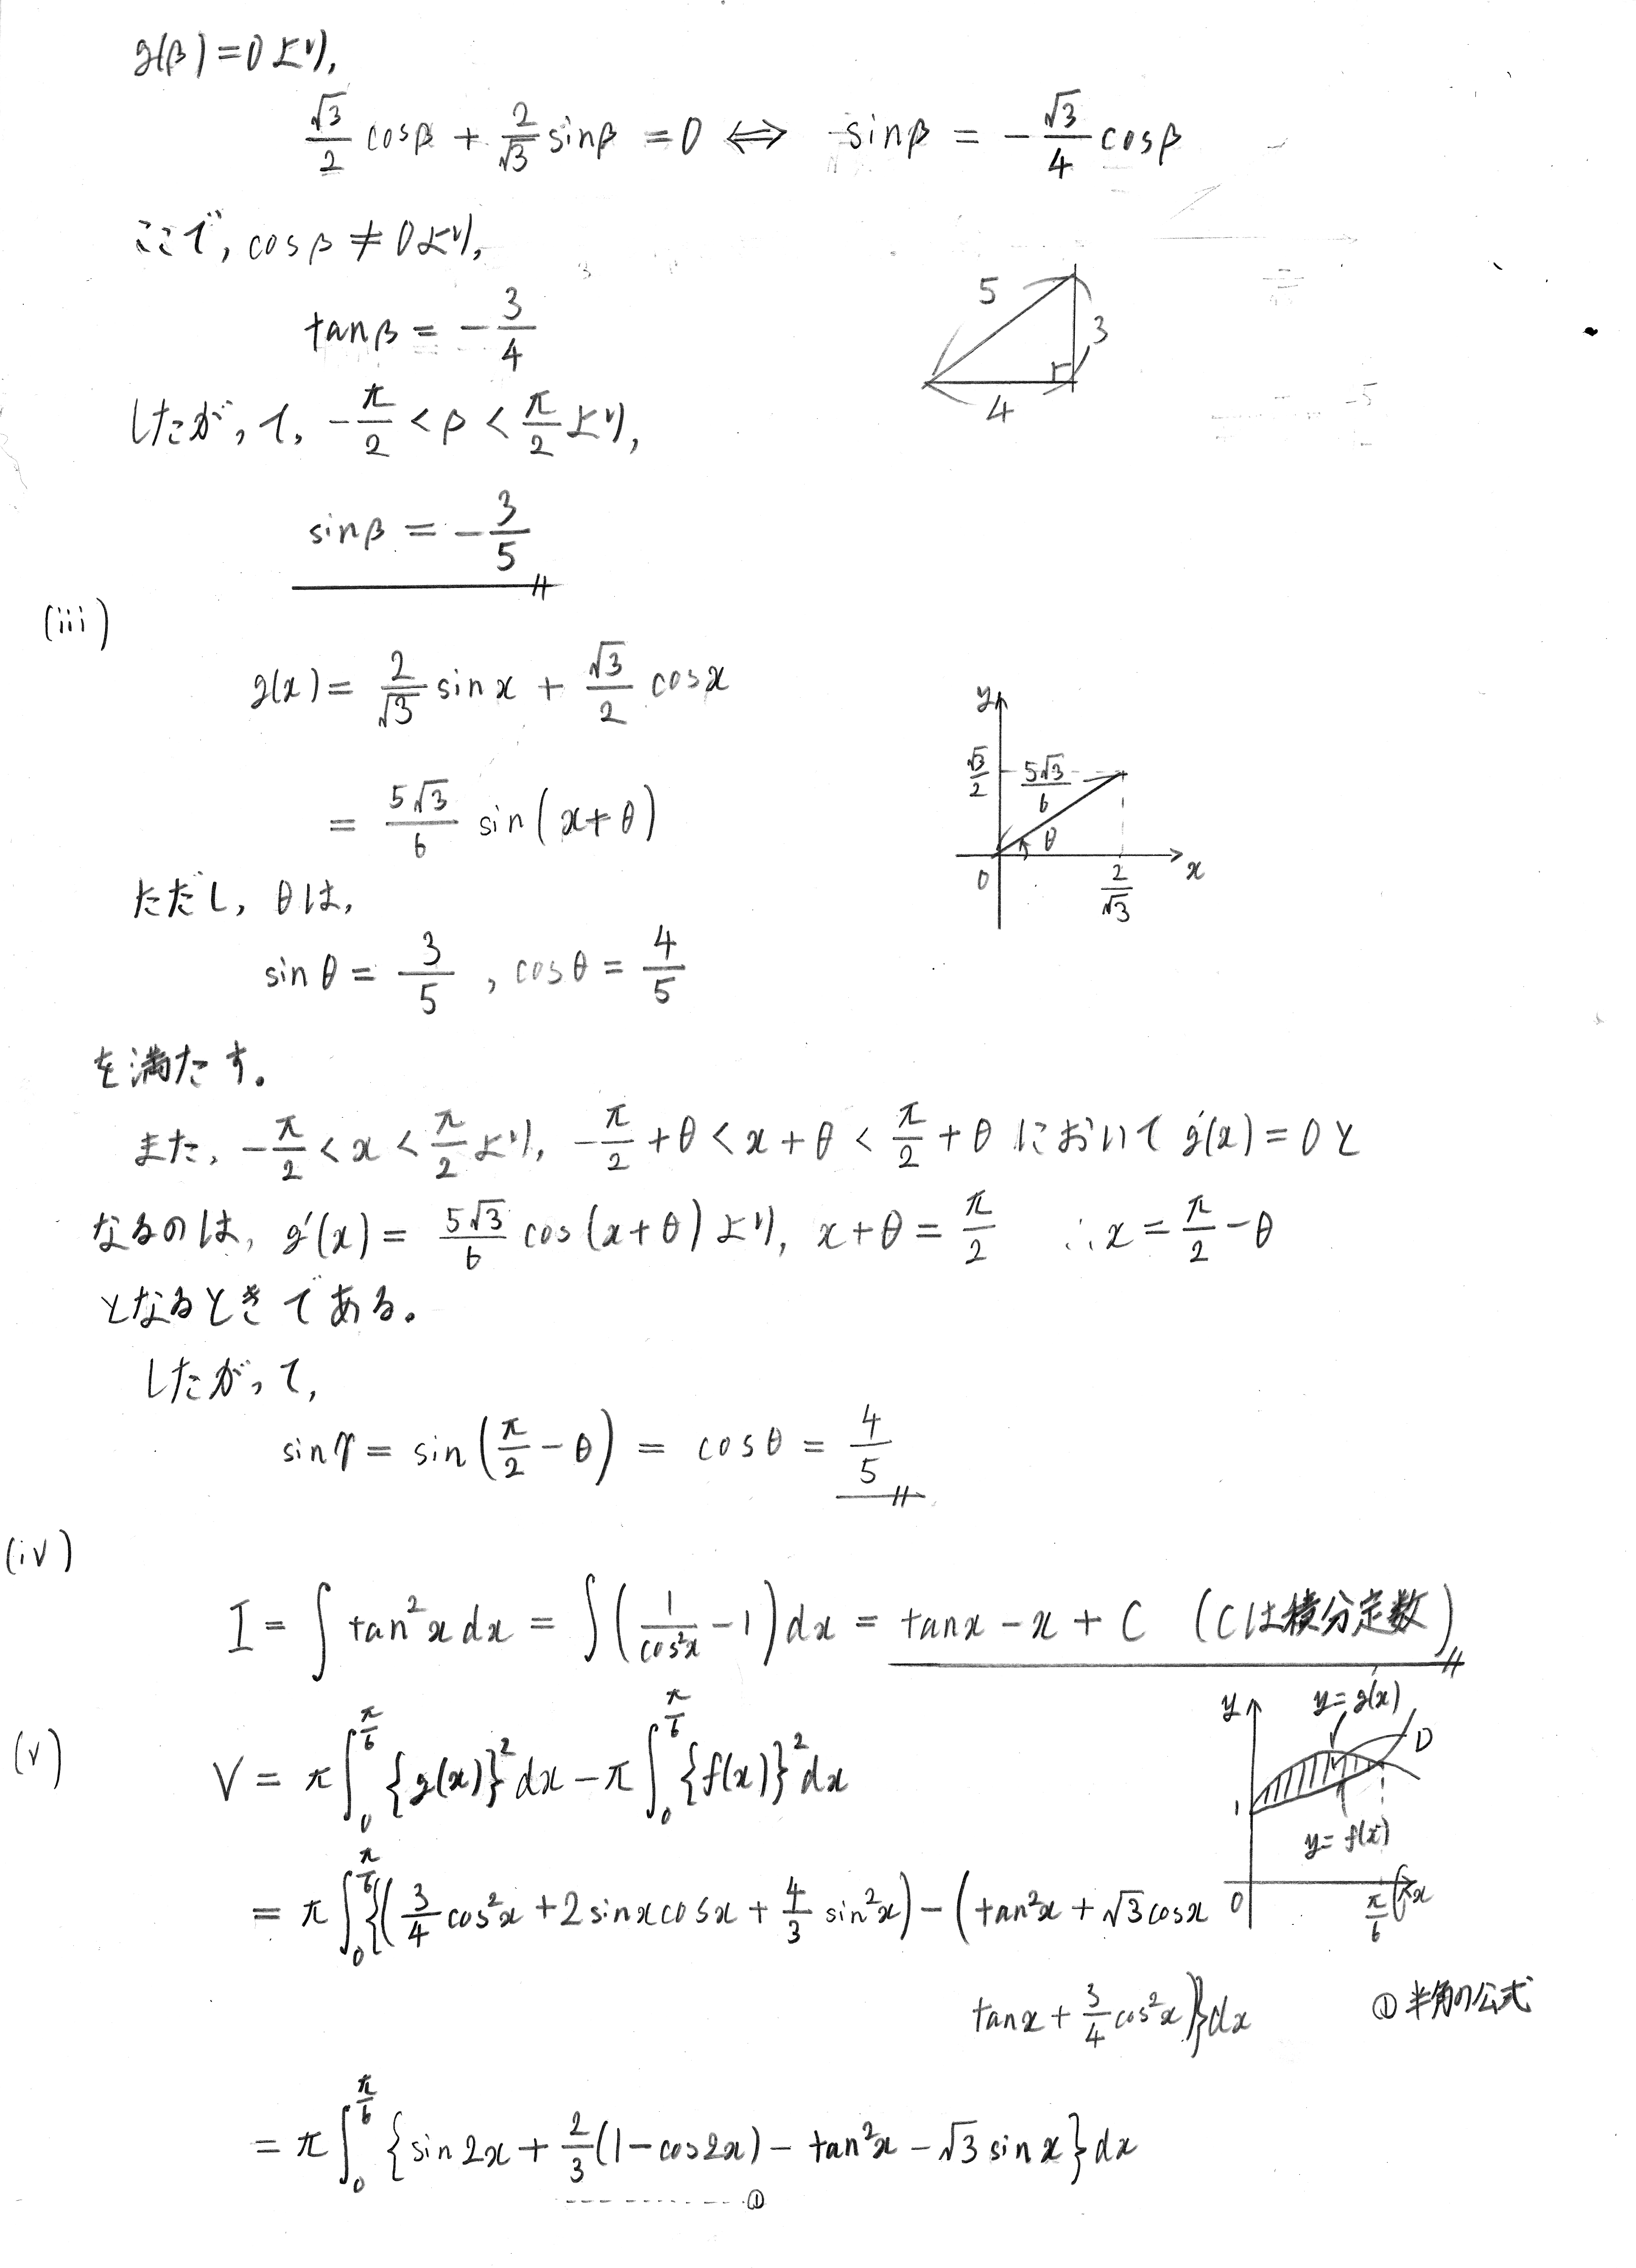 g(β)=0より,
√3/2 cosβ + 2/√3 sinβ = 0 ⇔ sinβ = -√3/4 cosβ
ここで, cosβ ≠ 0より,
tanβ = -3/4
5
3
4
したがって, -π/2 < β < π/2 より,
sinβ = -3/5
(iii)
g(x) = 2/√3 sinx + √3/2 cosx
= 5√3/6 sin(x+θ)
y
√3/2
5√3/6
θ
0
2/√3
x
ただし, θは,
sinθ = 3/5 , cosθ = 4/5
を満たす。
また, -π/2 < x < π/2 より, -π/2 + θ < x + θ < π/2 + θ において g'(x) = 0 と
なるのは, g'(x) = 5√3/6 cos(x+θ) より, x+θ = π/2 ∴ x = π/2 - θ
となるときである。
したがって,
sinγ = sin(π/2 - θ) = cosθ = 4/5
(iv)
I = ∫ tan²x dx = ∫(1/cos²x - 1)dx = tanx - x + C (Cは積分定数)
(v)
V = π∫₀^{π/6} {g(x)}² dx - π∫₀^{π/6} {f(x)}² dx
y
y=g(x)
D
1
y=f(x)
0
π/6
x
= π∫₀^{π/6} {(3/4 cos²x + 2sinxcosx + 4/3 sin²x) - (tan²x + √3cosx
tanx + 3/4 cos²x)}dx
① 半角の公式
= π∫₀^{π/6} {sin2x + 2/3(1-cos2x) - tan²x - √3 sinx}dx
①